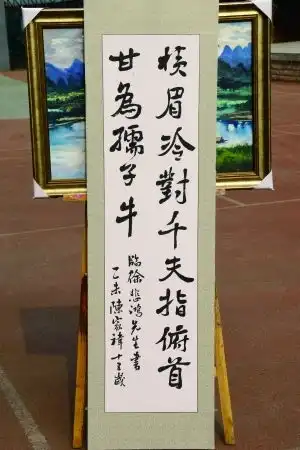 横眉冷對千夫指俯首
甘為孺子牛
臨徐悲鴻先生書
乙未陳家禕十三歲